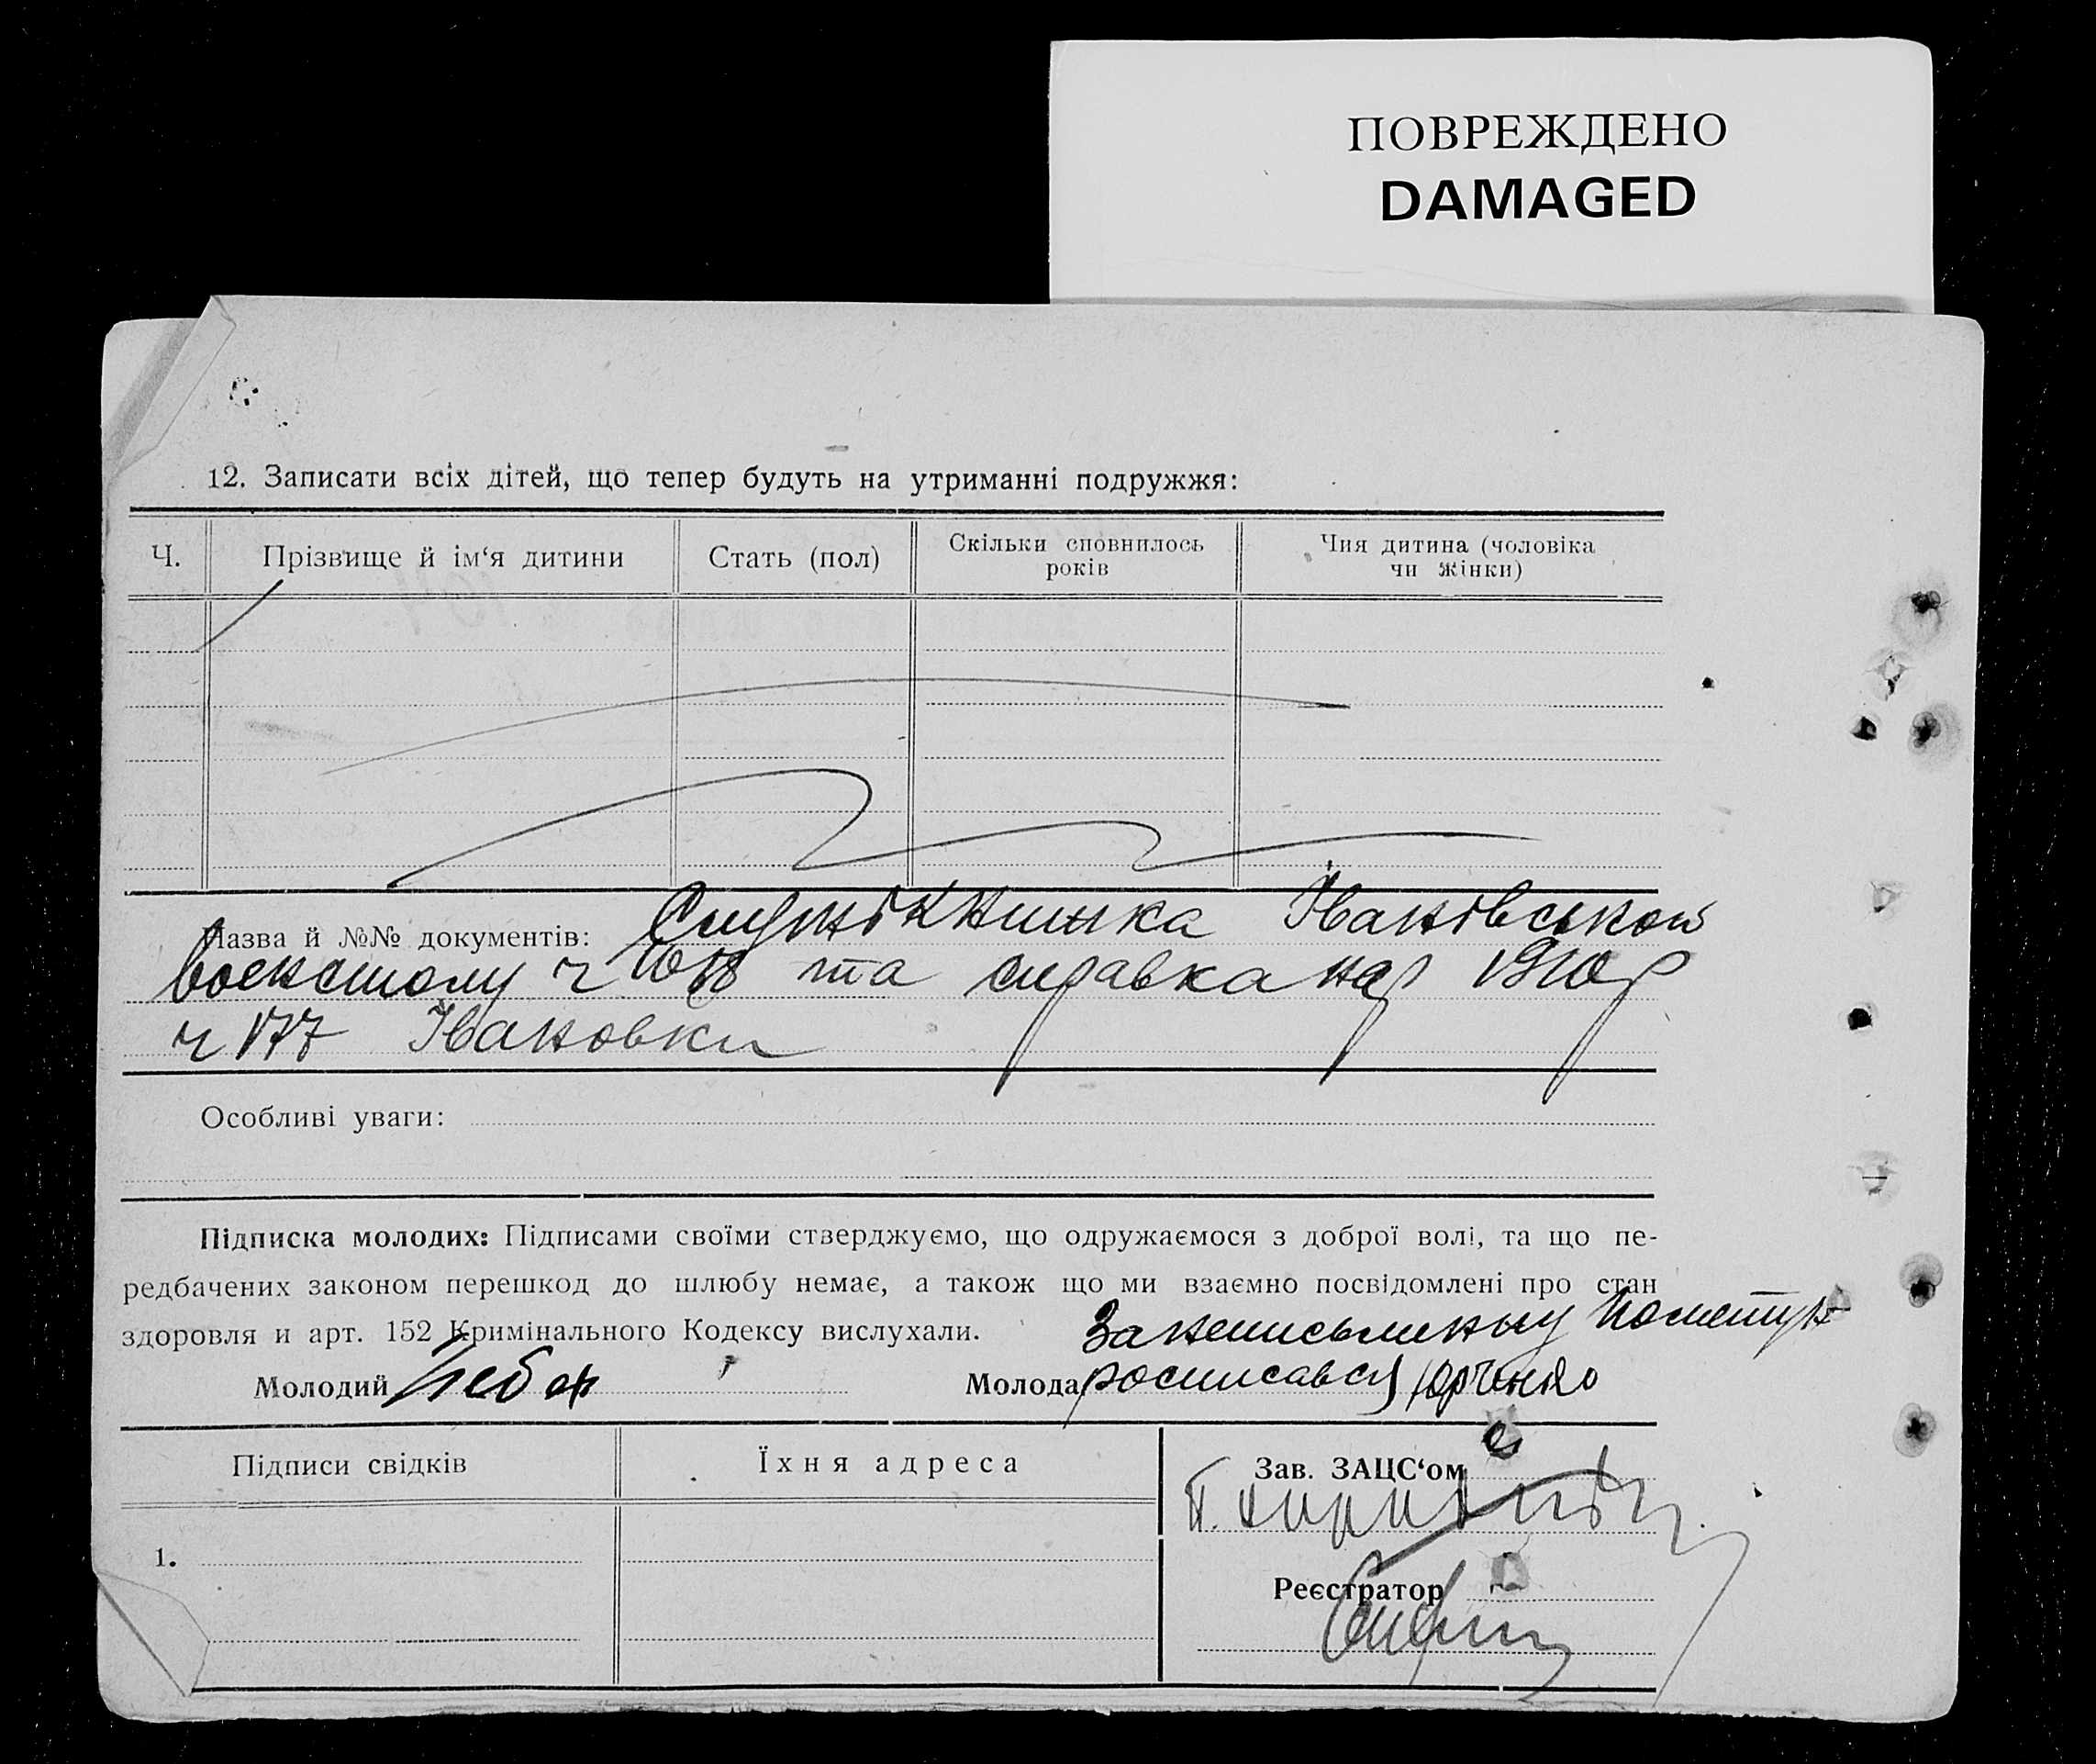 ПОВРЕЖДЕНО
DAMAGED
12. Записати всіх дітей, що тепер будуть на утриманні подружжя:
Ч.
Прізвище й ім‘я дитини
Стать (пол)
Скільки сповнилось
років
Чия дитина (чоловіка
чи жінки)
Назва й №№ документів: Івановської
та справка
ч 177 Івановки
Особливі уваги:
Підписка молодих: Підписами своїми стверджуємо, що одружаємося з доброї волі, та що пе-
редбачених законом перешкод до шлюбу немає, а також що ми взаємно посвідомлені про стан
здоровля и арт. 152 Кримінального Кодексу вислухали. За неписьменну
Молодий
Молода росписався
Підписи свідків
Їхня адреса
Зав. ЗАЦС‘ом
1.
Реєстратор